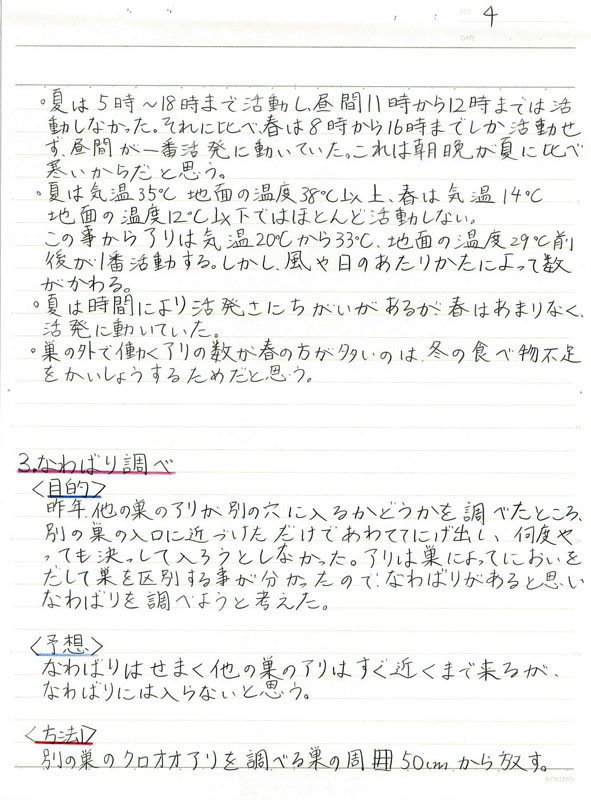 4
・夏は5時～18時まで活動し、昼間11時から12時までは活
動しなかった。それに比べ、春は8時から16時までしか活動せ
ず、昼間が一番活発に動いていた。これは朝晩が夏に比べ
寒いからだと思う。
・夏は気温35℃ 地面の温度38℃以上、春は気温14℃
地面の温度12℃以下ではほとんど活動しない。
この事からアリは気温20℃から33℃、地面の温度29℃前
後が1番活動する。しかし、風や日のあたりかたによって数
がかわる。
・夏は時間により活発さにちがいがあるが春はあまりなく、
活発に動いていた。
・巣の外で働くアリの数が春の方が多いのは、冬の食べ物不足
をかいしょうするためだと思う。
3.なわばり調べ
〈目的〉
昨年、他の巣のアリが、別の穴に入るかどうかを調べたところ、
別の巣の入口に近づけただけであわててにげ出し、何度や
っても決っして入ろうとしなかった。アリは巣によってにおいを
だして巣を区別する事が分かったので、なわばりがあると思い
なわばりを調べようと考えた。
〈予想〉
なわばりはせまく他の巣のアリはすぐ近くまで来るが、
なわばりには入らないと思う。
〈方法1〉
別の巣のクロオオアリを調べる巣の周囲50cmから放す。